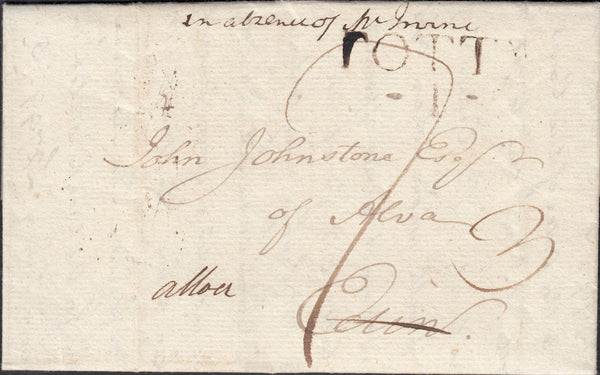 in absence of Mr Irvine
POTT
7
John Johnstone Esqr
of Alva
3
alloa
Edinr.